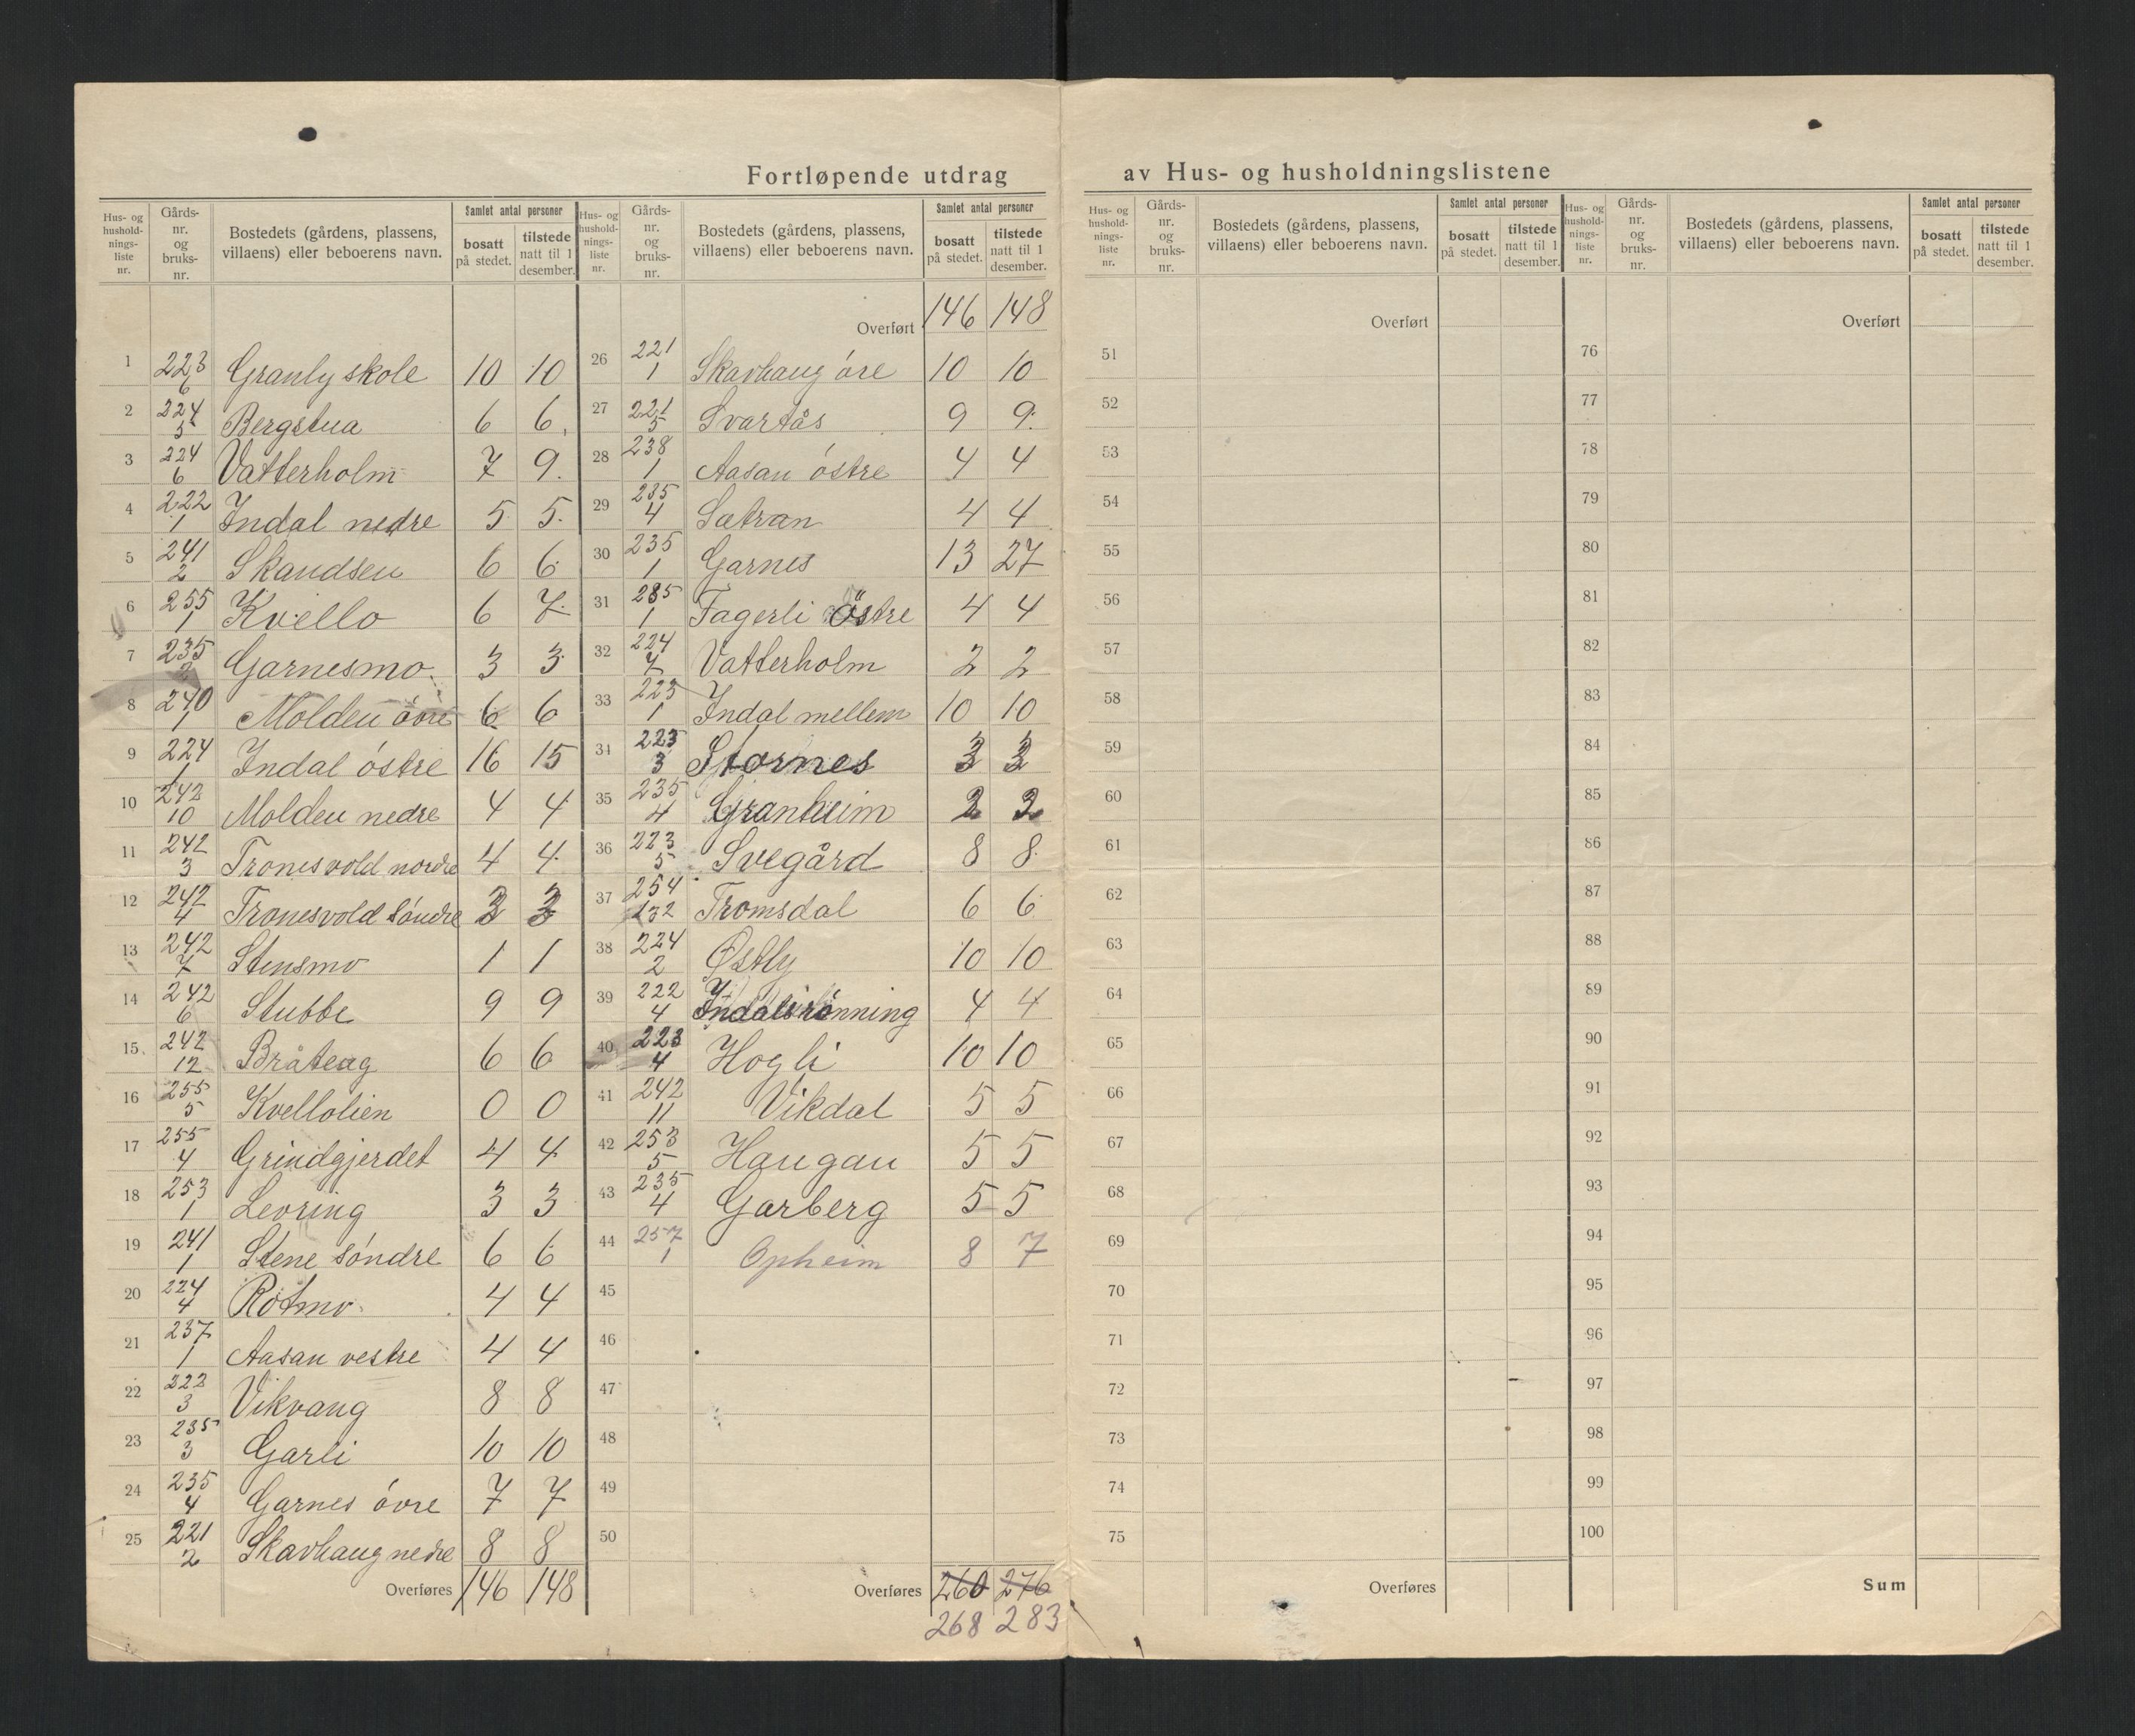 Fortløpende utdrag av Hus- og husholdningslistene
Hus- og hushold-nings-liste nr. Gårds-nr. og bruks-nr. Bostedets (gårdens, plassens, villaens) eller beboerens navn. Samlet antal personer bosatt på stedet. tilstede natt til 1 desember.
1 223 6 Granly skole 10 10
2 224 5 Bergstua 6 6
3 224 6 Vatterholm 7 9
4 222 1 Indal nedre 5 5
5 241 2 Skandsen 6 6
6 255 1 Kvello 6 7
7 235 2 Garnesmo 3 3
8 240 1 Molden övre 6 6
9 224 1 Indal östre 16 15
10 242 10 Molden nedre 4 4
11 242 3 Tronesvold nordre 4 4
12 242 4 Tronesvold söndre 3 3
13 242 7 Stensmo 1 1
14 242 6 Stubbe 9 9
15 242 12 Bråteag 6 6
16 255 5 Kvellolien 0 0
17 255 4 Grindgjerdet 4 4
18 253 1 Levring 3 3
19 241 1 Stene söndre 6 6
20 224 4 Rotmo 4 4
21 237 1 Aasan vestre 4 4
22 222 3 Vikvang 8 8
23 235 3 Garli 10 10
24 235 4 Garnes övre 7 7
25 221 2 Skavhaug nedre 8 8
Overføres 146 148
Hus- og hushold-nings-liste nr. Gårds-nr. og bruks-nr. Bostedets (gårdens, plassens, villaens) eller beboerens navn. Samlet antal personer bosatt på stedet. tilstede natt til 1 desember.
Overført 146 148
26 221 1 Skavhaug öre 10 10
27 221 5 Svartås 9 9
28 238 1 Aasan östre 4 4
29 235 4 Sætran 4 4
30 235 1 Garnes 13 27
31 285 1 Fagerli östre 4 4
32 224 7 Vatterholm 2 2
33 223 1 Indal mellem 10 10
34 223 3 Stornes 3 3
35 235 4 Granheim 2 2
36 223 5 Svegård 8 8
37 254 132 Tromsdal 6 6
38 224 2 Østly 10 10
39 222 4 Indalsrönning 4 4
40 223 4 Hogli 10 10
41 242 11 Vikdal 5 5
42 253 5 Haugan 5 5
43 235 4 Garberg 5 5
44 257 1 Opheim 8 7
45
46
47
48
49
50
Overføres 260 276
268 283
Hus- og hushold-nings-liste nr. Gårds-nr. og bruks-nr. Bostedets (gårdens, plassens, villaens) eller beboerens navn. Samlet antal personer bosatt på stedet. tilstede natt til 1 desember.
Overført
51
52
53
54
55
56
57
58
59
60
61
62
63
64
65
66
67
68
69
70
71
72
73
74
75
Overføres
Hus- og hushold-nings-liste nr. Gårds-nr. og bruks-nr. Bostedets (gårdens, plassens, villaens) eller beboerens navn. Samlet antal personer bosatt på stedet. tilstede natt til 1 desember.
Overført
76
77
78
79
80
81
82
83
84
85
86
87
88
89
90
91
92
93
94
95
96
97
98
99
100
Sum